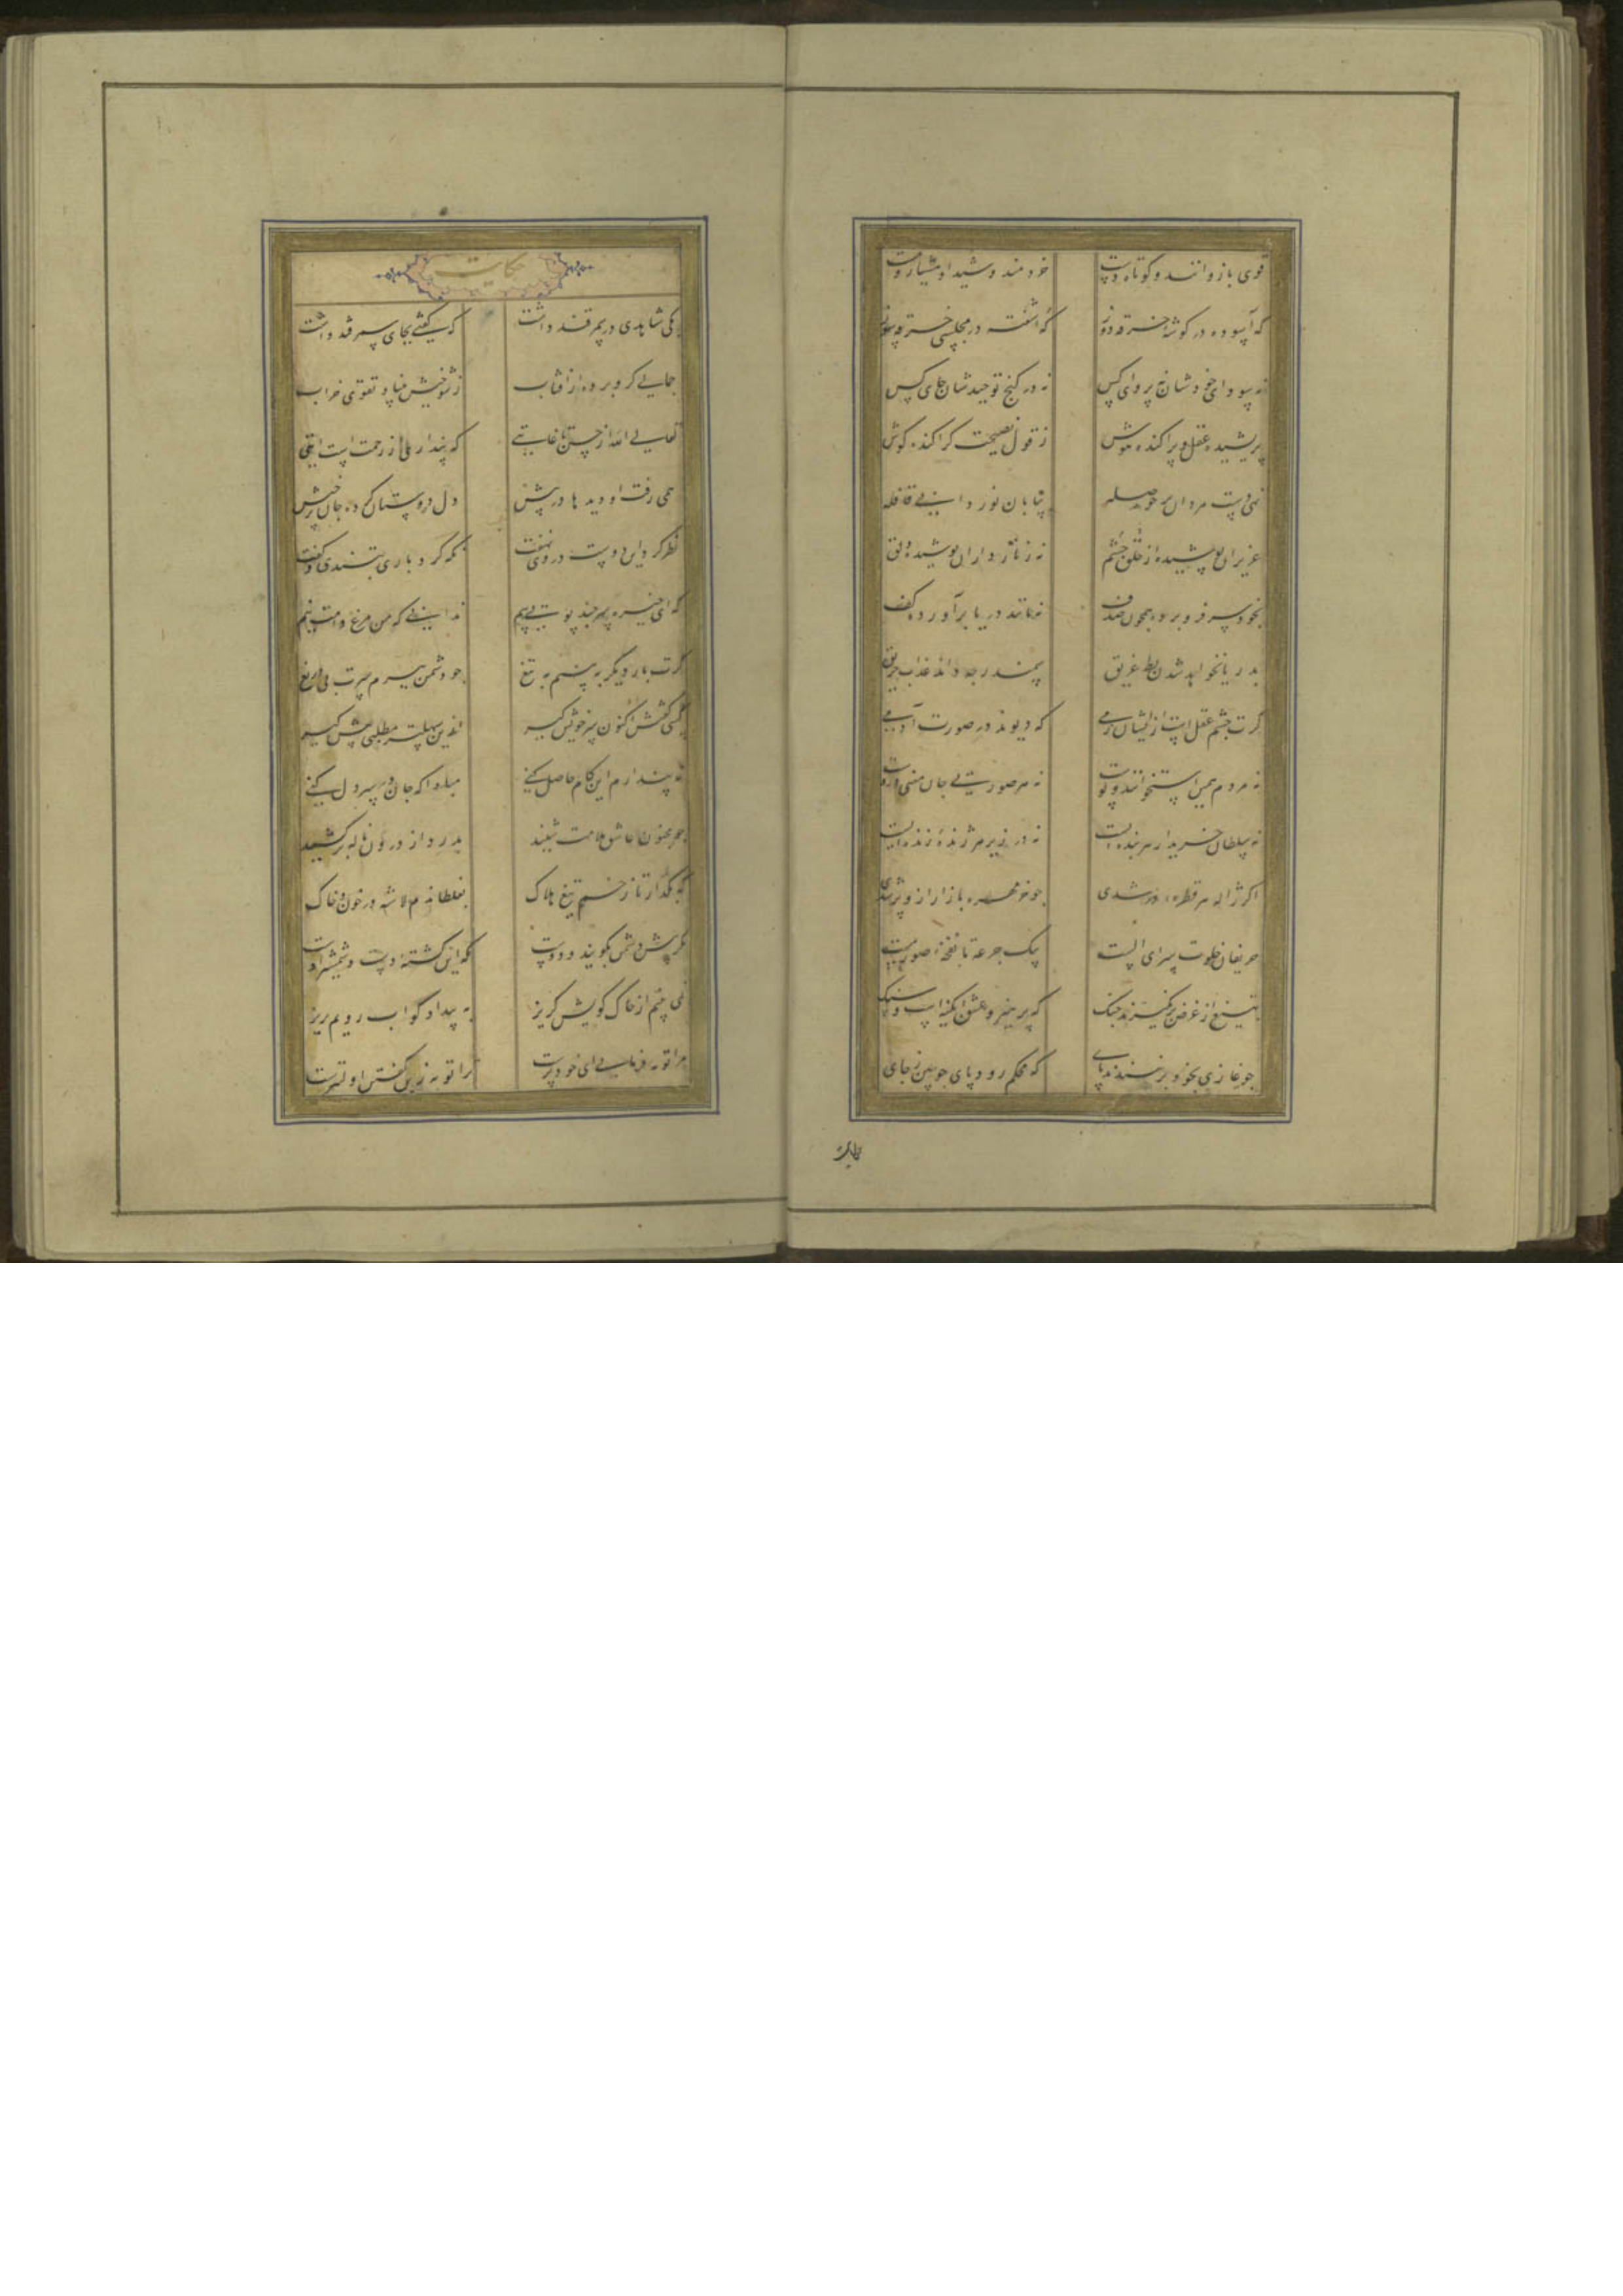 قوی بازوانند و کوتاه دست خردمند و شیدا و هشیار و مست
که آسوده در کوشه خرقه دوز که آشفته در مجلسی خرقه سوز
نه سودای خودشان نه پروای کس نه در کنج توحیدشان جای کس
پریشیده عقل و پراکنده هوش ز قول نصیحت کر آکنده کوش
تهی دست مردان پر حوصله بیابان نوردان بی قافله
عزیزان پوشیده از خلق چشم نه زنار داران پوشیده دلق
بخود سر فرو برده همچون صدف نه مانند دریا برآورده کف
بدریا نخواهد شدن بط غریق سمندر چه داند عذاب حریق
کرت چشم عقل است ازیشان رمی که دیوند در صورت آدمی
نه مردم همین استخوانند و پوست نه هر صورتی جان معنی دروست
نه سلطان خریدار هر بنده ایست نه در زیر هر ژنده زنده ایست
اکر ژاله هر قطره در شدی چو خرمهره بازار ازو پر شدی
حریفان خلوت سرای الست بیک جرعه تا نفخه صور مست
بتیغ از غرض برنکیرند چنک که پرهیز و عشق آبکینه است و سنک
چو غازی بخود بر نبندند پای که محکم رود پای چوبین ز جای
حکایت
حکایت
یکی شاهدی در سمرقند داشت که کفتی بجای سمر قند داشت
جمالی کرو برده از آفتاب ز شوخیش بنیاد تقوی خراب
تعالی الله از حسن تا غایتی که پنداری از رحمت است آیتی
همی رفت او دیدها در پیش دل دوستان کرده جان برخیش
نظر کرد این دوست در وی نهفت نکه کرد باری بتندی و کفت
که ای خیره سر چند پویی پیم ندانی که من مرغ دامت نیم
کرت بار دیکر ببینم به تیغ چو دشمن ببرم سرت بی دریغ
کسی کفتش اکنون سر خویش کیر ازین سهلتر مطلبی پیش کیر
نه پندارم این کام حاصل کنی مبادا که جان در سر دل کنی
چو مجنون عاشق ملامت شنید بدرد از درون ناله برکشید
که بکذار تا زخم تیغ هلاک بغلطاندم لاشه در خون و خاک
مکر پیش دشمن بکویند و دوست که این کشته دست و شمشیر اوست
نمی بینم از خاک کویش کریز به بیداد کو آب رویم بریز
مرا توبه فرمایی ای خودپرست ترا توبه زین کفتن اولیترست